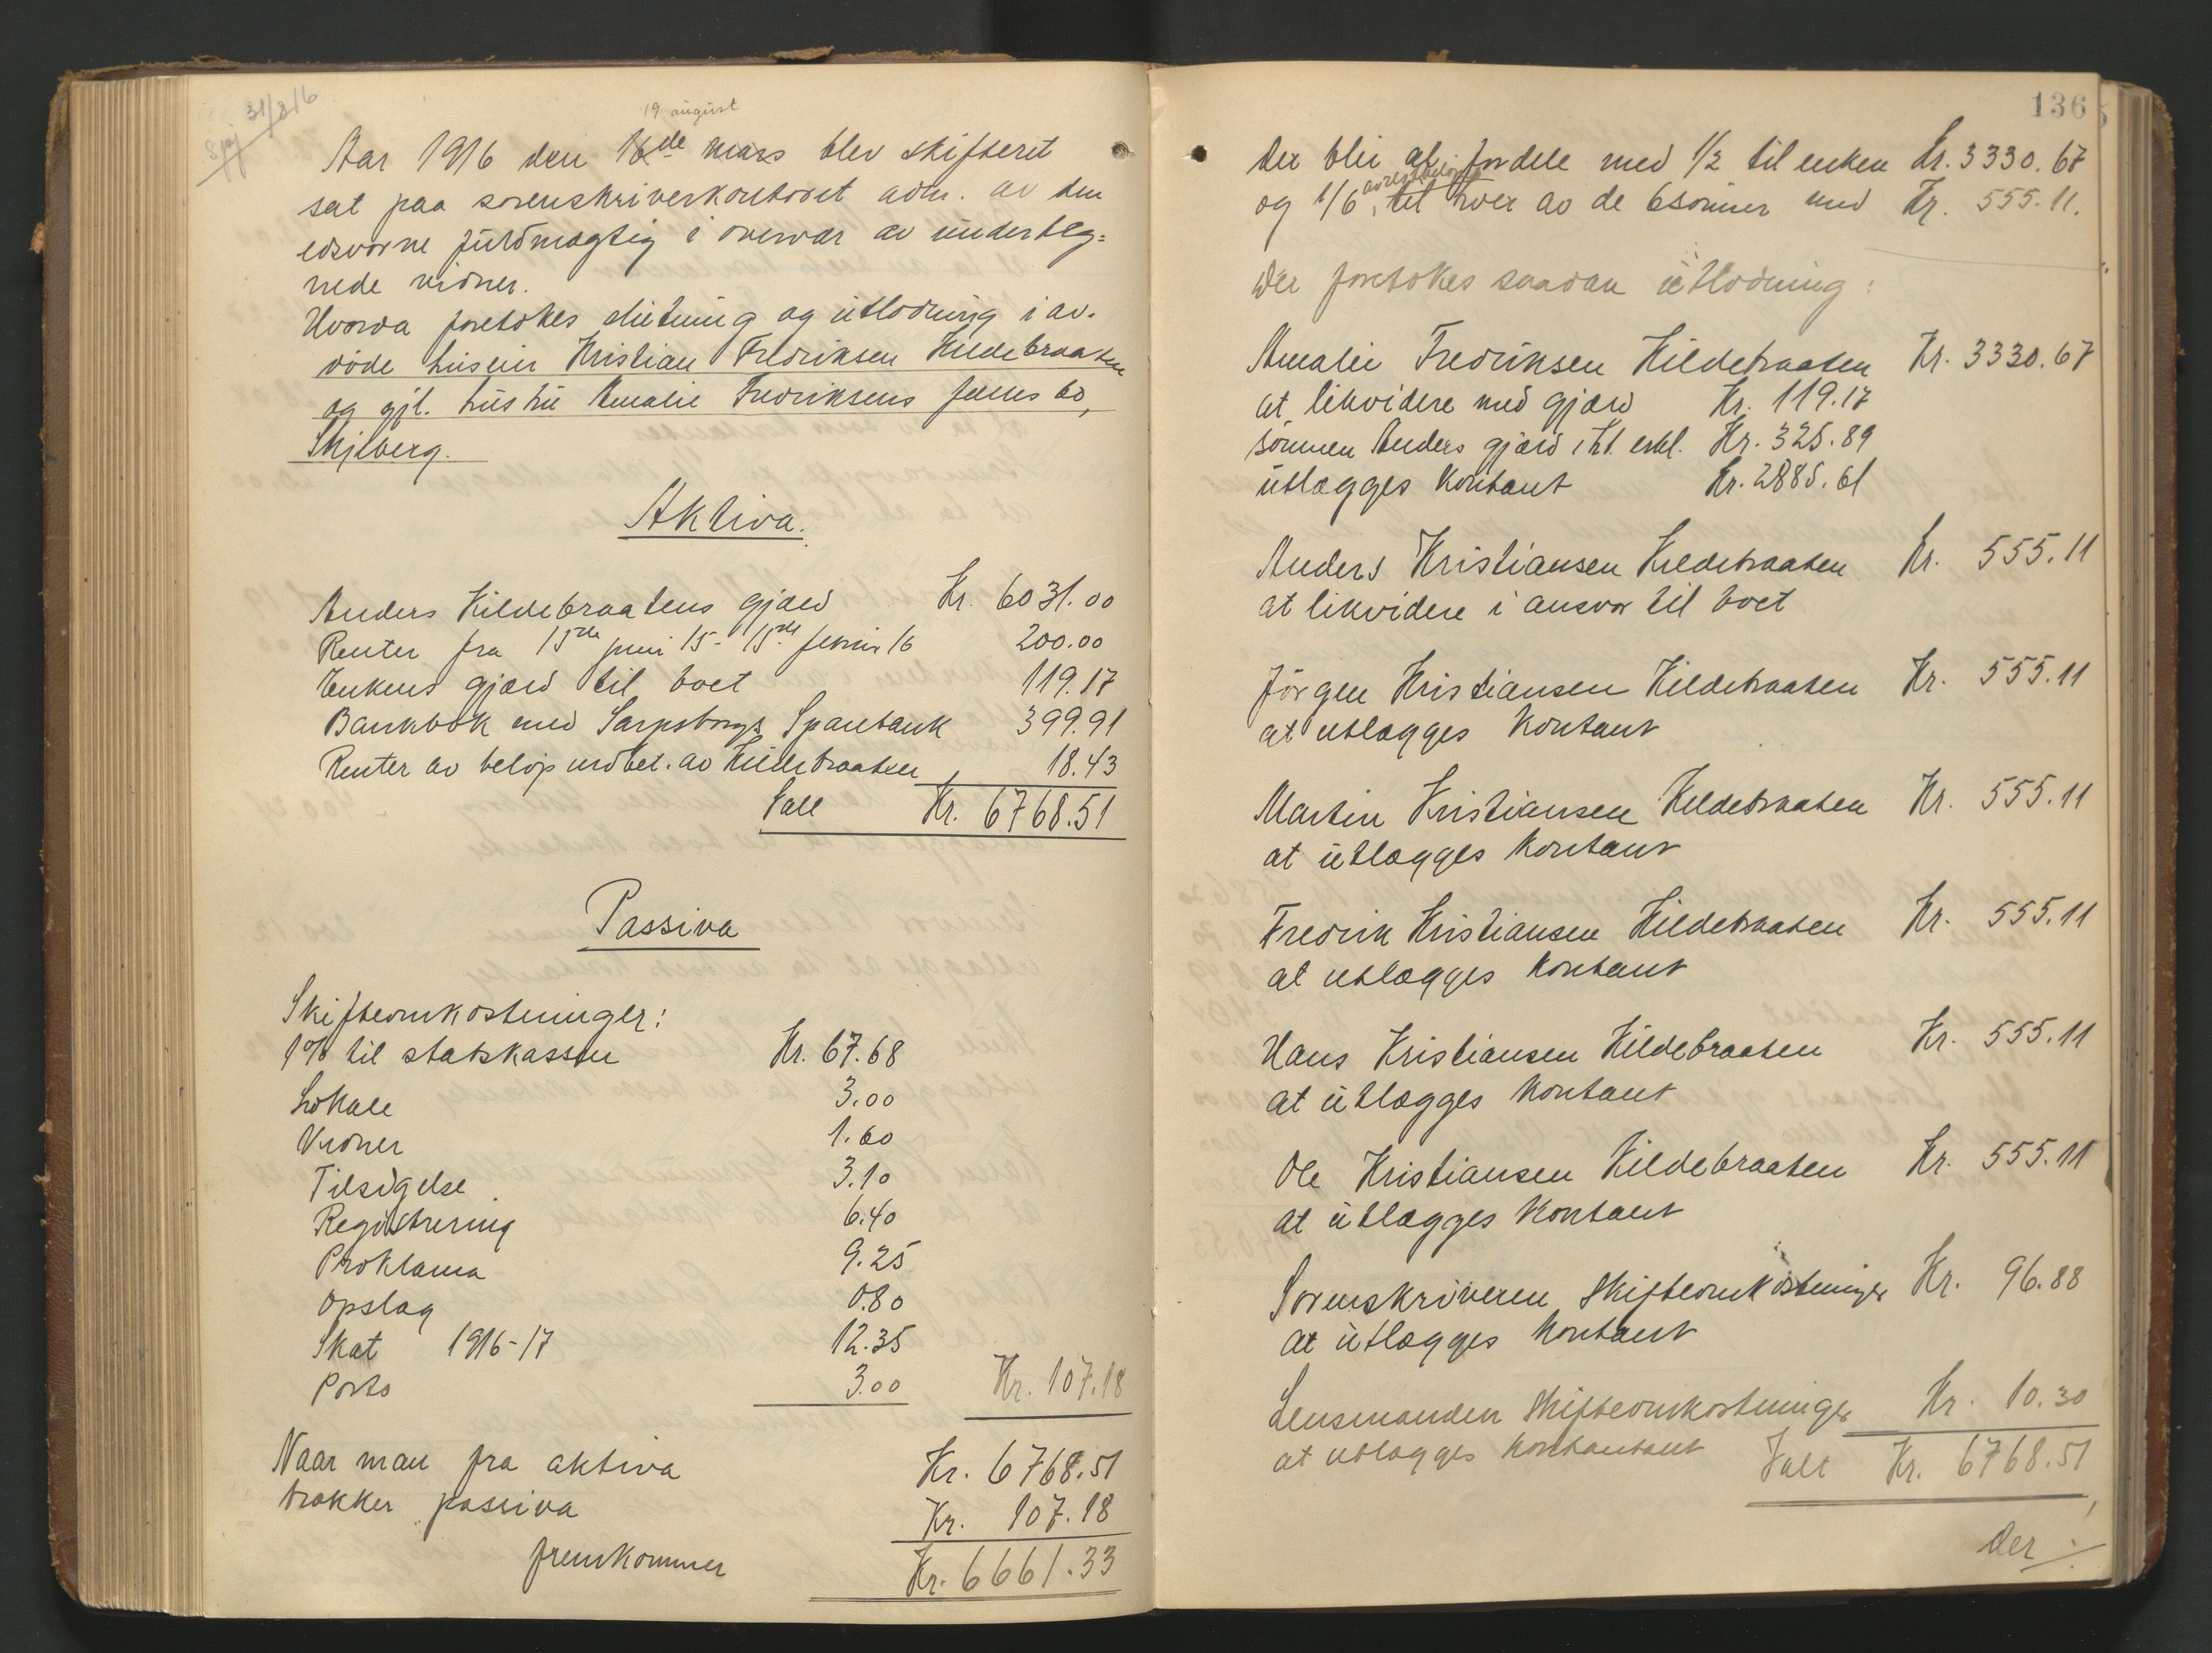 31/8 16
19 august
Aar 1916 den 16de mars blev skifteret
sat paa sorenskriverkontoret adm. av den
edsvorne fuldmægtig i overvær av underteg=
nede vidner.
Hvorda foretokes slutning og utlodning i av-
døde huseier Kristian Fredriksen Kildebraaten
og gjl. hustru Amalie Fredriksens fælles bo,
Skjeberg.
Aktiva.
Anders Kildebraatens gjæld Kr. 6031.00
Renter fra 15de juni 15 - 15de februar 16 200.00
Enkens gjæld til boet 119.17
Bankbok med Sarpsborgs Sparebank 399.91
Renter av beløp indbet. av Kildebraaten 18.43
Ialt Kr. 6768.51
Passiva
Skifteomkostninger:
1% til statskassen Kr. 67.68
Lokale 3.00
Vidner 1.60
Tilsigelse 3.10
Registrering 6.40
Proklama 9.25
Opslag 0.80
Skat 1916-17 12.35
Porto 3.00 Kr. 107.18
Naar man fra aktiva Kr. 6768.51
trækker passiva Kr. 107.18
fremkommer Kr. 6661.33
136
Der blir at fordele med 1/2 til enken Kr. 3330.67
og 1/6 av restbeløpet til hver av de 6 sønner med Kr. 555.11.
Der foretokes saadan utlodning:
Amalie Fredriksen Kildebraaten Kr. 3330.67
at likvidere med gjæld Kr. 119.17
sønnen Anders gjæld iht. erkl. Kr. 325.89
utlægges kontant Kr. 2885.61
Anders Kristiansen Kildebraaten Kr. 555.11
at likvidere i ansvar til boet
Jørgen Kristiansen Kildebraaten Kr. 555.11
at utlægges kontant
Martin Kristiansen Kildebraaten Kr. 555.11
at utlægges kontant
Fredrik Kristiansen Kildebraaten Kr. 555.11
at utlægges kontant
Hans Kristiansen Kildebraaten Kr. 555.11
at utlægges kontant
Ole Kristiansen Kildebraaten Kr. 555.11
at utlægges kontant
Sorenskriveren skifteomkostninger Kr. 96.88
at utlægges kontant
Lensmanden skifteomkostninger Kr. 10.30
at utlægges kontantant Ialt Kr. 6768.51
Der